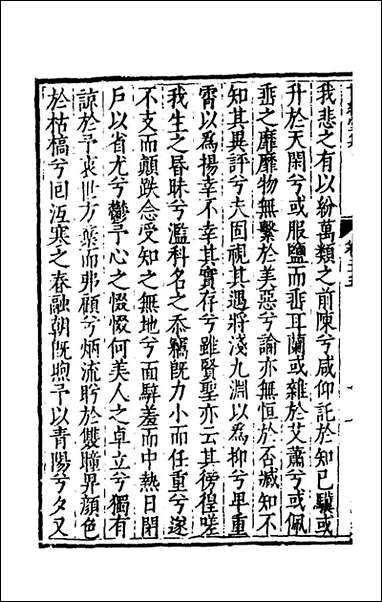 我悲之有以紛萬類之前陳兮咸仰託於知已驥或
升於天閑兮或服鹽而垂耳蘭或雜於艾蕭兮或佩
垂之靡靡物無繫於美惡兮諭亦無恒於否滅知不
知其異評兮夫固視其遇將淺九淵以為抑兮卑重
霄以為揚幸不幸其實存兮雖賢聖亦云其徬徨嗟
我生之昏昧兮濫科名之忝竊旣力小而任重兮遂
不支而顛跌念受知之無地兮面騂羞而中熱日閉
戶以省尤兮鬱予心之惙惙何美人之卓立兮獨有
諒於予衷世方棄而弗顧兮炳流盻於雙瞳昇顏色
於枯槁兮回沍寒之春融朝旣煦予以青陽兮夕又